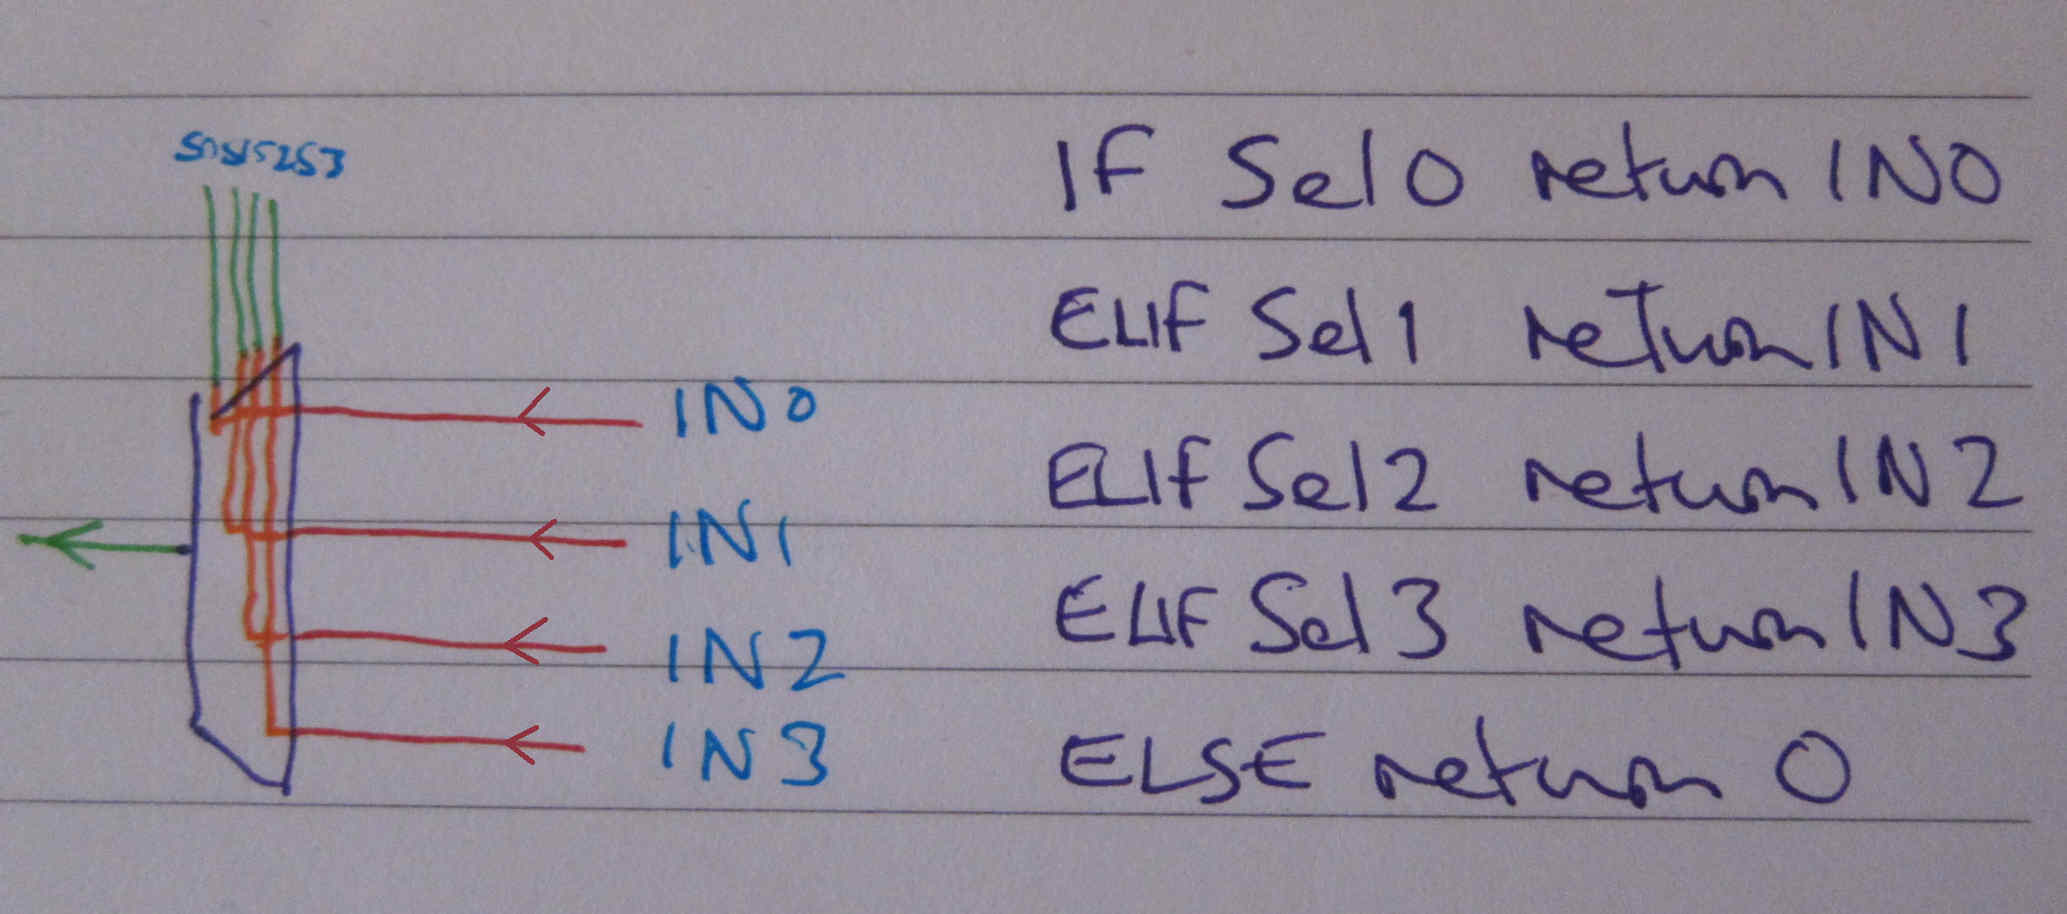 S0S1S2S3
IF Sel0 return IN0
ELIF Sel1 return IN1
IN0
ELIF Sel2 return IN2
IN1
ELIF Sel3 return IN3
IN2
ELSE return 0
IN3